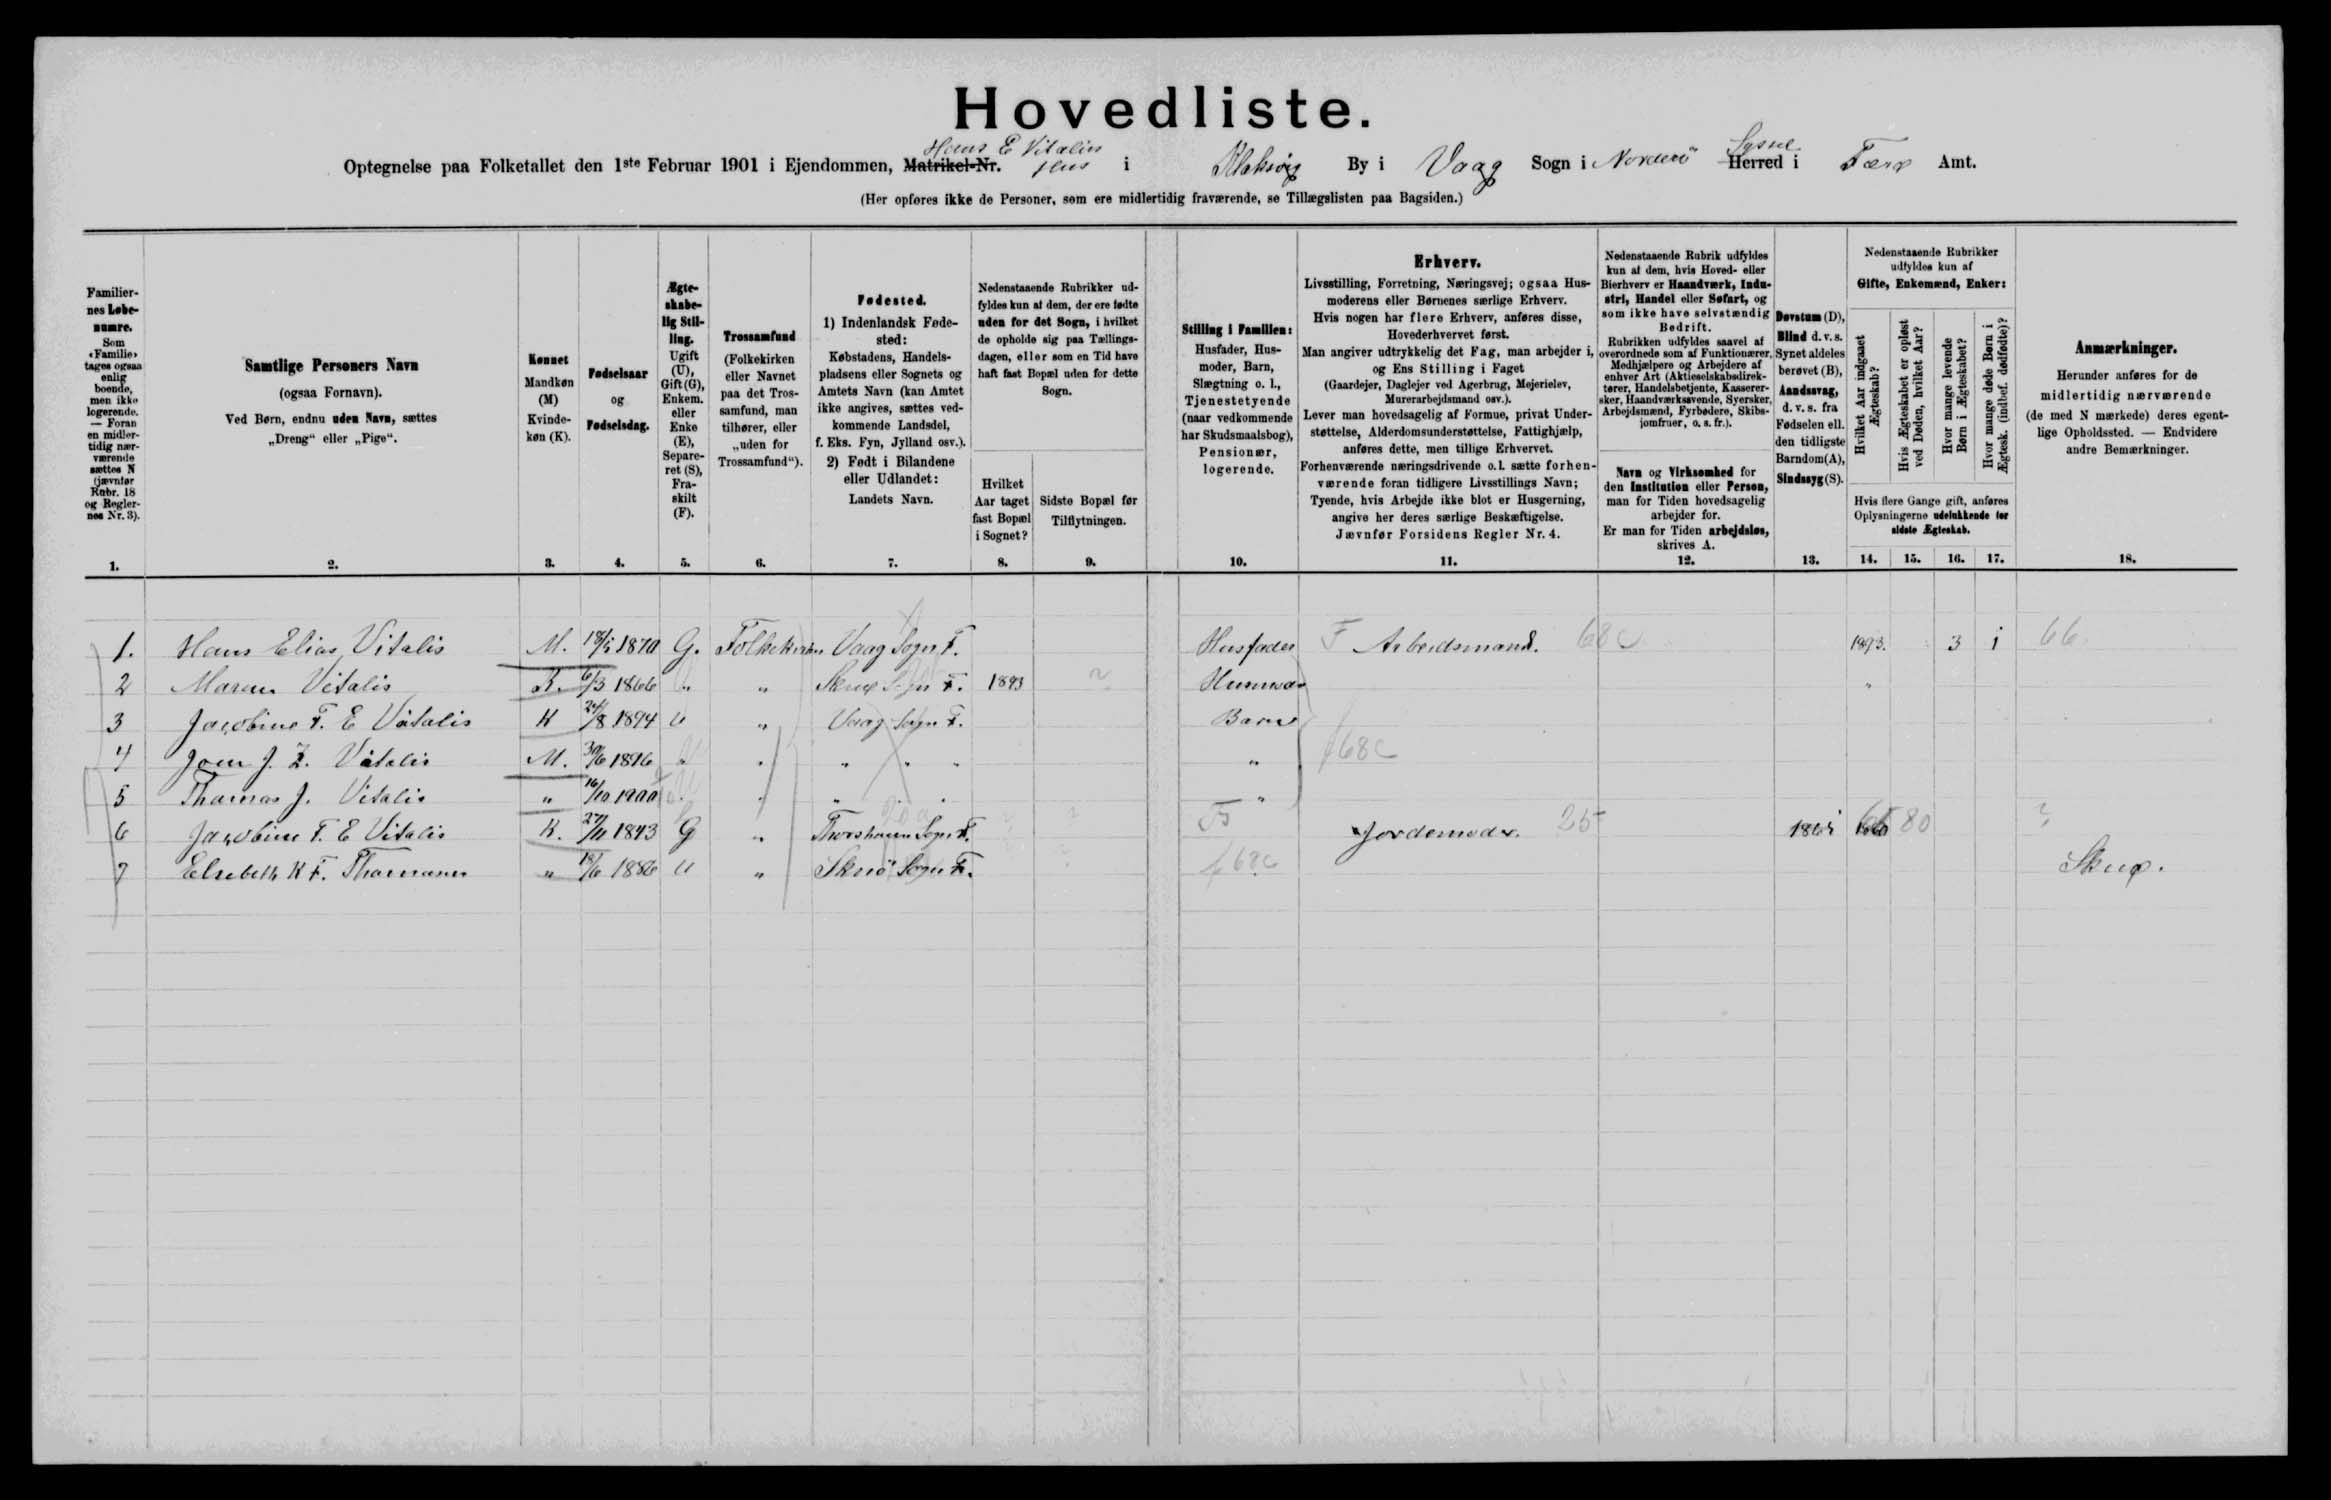 Hovedliste.
Hans E Vitalis Sysne
Optegnelse paa Folketallet den 1ste Februar 1901 i Ejendommen, Matrikel-Nr. Hus i Klaksvig By i Vaag Sogn i Norderö Herred i Færø Amt.
(Her opføres ikke de Personer, som ere midlertidig fraværende, se Tillægslisten paa Bagsiden.)
Familiernes Løbenumre.
Som «Familie» tages ogsaa enlig boende, men ikke logerende. — Foran en midlertidig nærværende sættes N (jævnfør Rubr. 18 og Reglernes Nr. 3).
1.
Samtlige Personers Navn
(ogsaa Fornavn).
Ved Børn, endnu uden Navn, sættes „Dreng“ eller „Pige“.
2.
Kønnet
Mandkøn (M)
Kvindekøn (K).
3.
Fødselsaar
og
Fødselsdag.
4.
Ægteskabelig Stilling.
Ugift (U), Gift (G), Enkem. eller Enke (E), Separeret (S), Fraskilt (F).
5.
Trossamfund
(Folkekirken eller Navnet paa det Trossamfund, man tilhører, eller „uden for Trossamfund“).
6.
Fødested.
1) Indenlandsk Fødested:
Købstadens, Handelspladsens eller Sognets og Amtets Navn (kan Amtet ikke angives, sættes vedkommende Landsdel, f. Eks. Fyn, Jylland osv.).
2) Født i Bilandene eller Udlandet:
Landets Navn.
7.
Nedenstaaende Rubrikker udfyldes kun af dem, der ere fødte uden for det Sogn, i hvilket de opholde sig paa Tællingsdagen, eller som en Tid have haft fast Bopæl uden for dette Sogn.
Hvilket Aar taget fast Bopæl i Sognet?
8.
Sidste Bopæl før Tilflytningen.
9.
Stilling i Familien:
Husfader, Husmoder, Barn, Slægtning o. l., Tjenestetyende (naar vedkommende har Skudsmaalsbog), Pensionær, logerende.
10.
Erhverv.
Livsstilling, Forretning, Næringsvej; ogsaa Husmoderens eller Børnenes særlige Erhverv.
Hvis nogen har flere Erhverv, anføres disse, Hovederhvervet først.
Man angiver udtrykkelig det Fag, man arbejder i, og Ens Stilling i Faget
(Gaardejer, Daglejer ved Agerbrug, Mejerielev, Murerarbejdsmand osv.).
Lever man hovedsagelig af Formue, privat Understøttelse, Alderdomsunderstøttelse, Fattighjælp, anføres dette, men tillige Erhvervet.
Forhenværende næringsdrivende o.l. sætte forhenværende foran tidligere Livsstillings Navn;
Tyende, hvis Arbejde ikke blot er Husgerning, angive her deres særlige Beskæftigelse.
Jævnfør Forsidens Regler Nr. 4.
11.
Nedenstaaende Rubrik udfyldes kun af dem, hvis Hoved- eller Bierhverv er Haandværk, Industri, Handel eller Søfart, og som ikke have selvstændig Bedrift.
Rubrikken udfyldes saavel af overordnede som af Funktionærer, Medhjælpere og Arbejdere af enhver Art (Aktieselskabsdirektører, Handelsbetjente, Kasserersker, Haandværkssvende, Syersker, Arbejdsmænd, Fyrbødere, Skibsjomfruer, o. s. fr.).
Navn og Virksomhed for den Institution eller Person, man for Tiden hovedsagelig arbejder for.
Er man for Tiden arbejdsløs, skrives A.
12.
Døvstum (D),
Blind d. v. s. Synet aldeles berøvet (B),
Aandssvag, d. v. s. fra Fødselen ell. den tidligste Barndom (A),
Sindssyg (S).
13.
Nedenstaaende Rubrikker udfyldes kun af
Gifte, Enkemænd, Enker:
Hvilket Aar indgaaet Ægteskab?
Hvis Ægteskabet er opløst ved Døden, hvilket Aar?
Hvor mange levende Børn i Ægteskabet?
Hvor mange døde Børn i Ægtesk. (indbef. dødfødte)?
Hvis flere Gange gift, anføres Oplysningerne udelukkende for sidste Ægteskab.
14. 15. 16. 17.
Anmærkninger.
Herunder anføres for de midlertidig nærværende (de med N mærkede) deres egentlige Opholdssted. — Endvidere andre Bemærkninger.
18.
1. Hans Elias Vitalis M. 18/5 1870 G. Folkekirken Vaag Sogn F. Husfader F Arbeidsmand. 68c 1893. 3 1 66.
2 Maren Vitalis K. 6/3 1866 „ „ Skuø Sogn F. 1893 ? Husmoder „
3 Jacobine F. E Vitalis K 24/8 1894 U „ Vaag Sogn F. Barn
4 Joen J. Z. Vitalis M. 30/6 1896 „ „ „ „ „ „ f 68c
5 Thomas J. Vitalis „ 16/10 1900 „ „ „ „ „ „
6 Jacobine F. E Vitalis K. 27/11 1843 G „ Thorshavn Sogn F. Jordemoder. 25 80 ?
7 Elsebeth K F. Thomasen „ 18/6 1886 U „ Skuö Sogn F. f 68c Skuø.